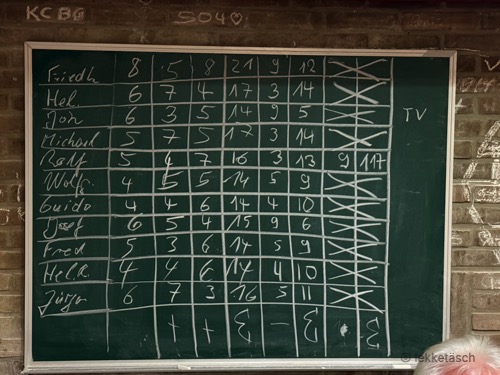 KCBG 504♡
Friedh 8 5 8 21 9 12
Hel. 6 7 4 17 3 14
Jön 6 3 5 14 9 5
TV
Michael 5 7 5 17 3 14
Ralf 5 4 7 16 3 13 9 117
Wolf. 4 5 5 14 5 9
Guido 4 4 6 14 4 10
Josef 6 5 4 15 9 6
Fred 5 3 6 14 5 9
Hel R. 4 4 6 14 4 10
Jürgen 6 7 3 16 5 11
+ + Σ - Σ · Σ
© lekketäsch